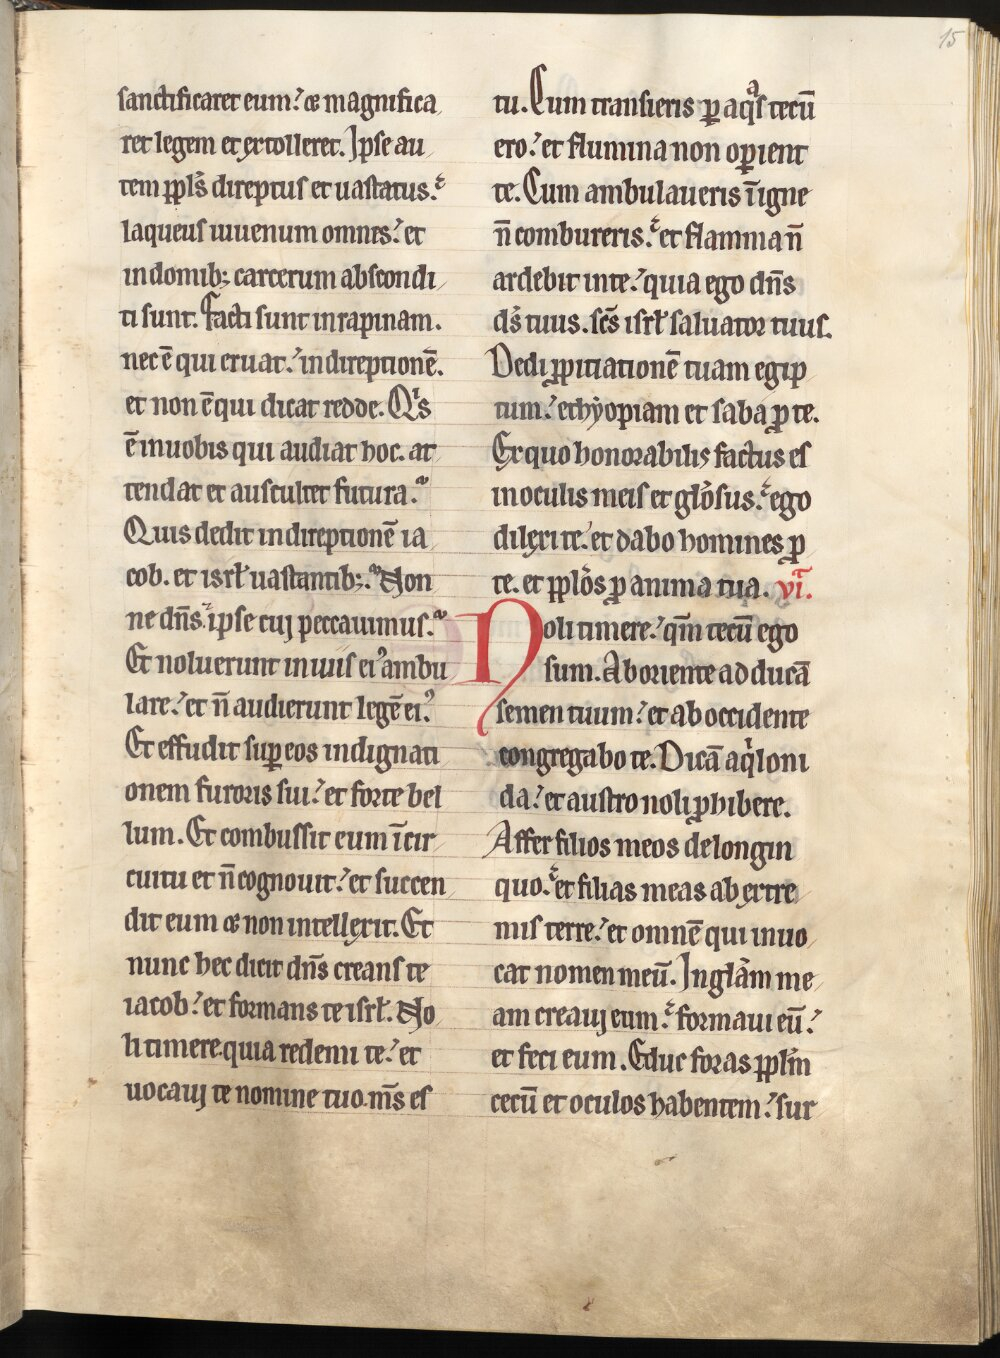 15
sanctificaret eum? et magnifica
ret legem et extolleret. Ipse au
tem ppls direptus et uastatus.
laqueus iuuenum omnes? et
in domib; carcerum abscondi
ti sunt. Facti sunt in rapinam.
nec ē qui eruat? in direptionē.
et non ē qui dicat redde. Qis
ē in uobis qui audiat hoc. at
tendat et auscultet futura.
Quis dedit in direptionē ia
cob. et isrł uastantib;. Non
ne dn̄s ipse cui peccauimus.
Et noluerunt in uiis ei' ambu
lare? et n̄ audierunt legē ei'.
Et effudit sup eos indignati
onem furoris sui? et forte bel
lum. Et combussit eum ī cir
cuitu et n̄ cognouit? et succen
dit eum et non intellexit. Et
nunc hec dicit dn̄s creans te
iacob? et formans te isrł. No
li timere. quia redemi te? et
uocaui te nomine tuo. m̄s es
tu. Cum transieris p aqas tecū
ero? et flumina non opient
te. Cum ambulaueris ī igne
n̄ combureris. et flamma n̄
ardebit in te? quia ego dn̄s
ds tuus. sc̄s isrł saluator tuus.
Dedi ppitiationē tuam egip
tum? ethyopiam et saba p te.
Ex quo honorabilis factus es
in oculis meis et glosus. ego
dilexi te. et dabo homines p
te. et pplos p anima tua. vi.
Noli timere? qm̄ tecū ego
sum. Ab oriente adducā
semen tuum? et ab occidente
congregabo te. Dicā aqiloni
da? et austro noli phibere.
Affer filios meos de longin
quo. et filias meas ab extre
mis terre? et omnē qui inuo
cat nomen meū. In glam me
am creaui eum. formaui eū?
et feci eum. Educ foras pplm
cecū et oculos habentem? sur